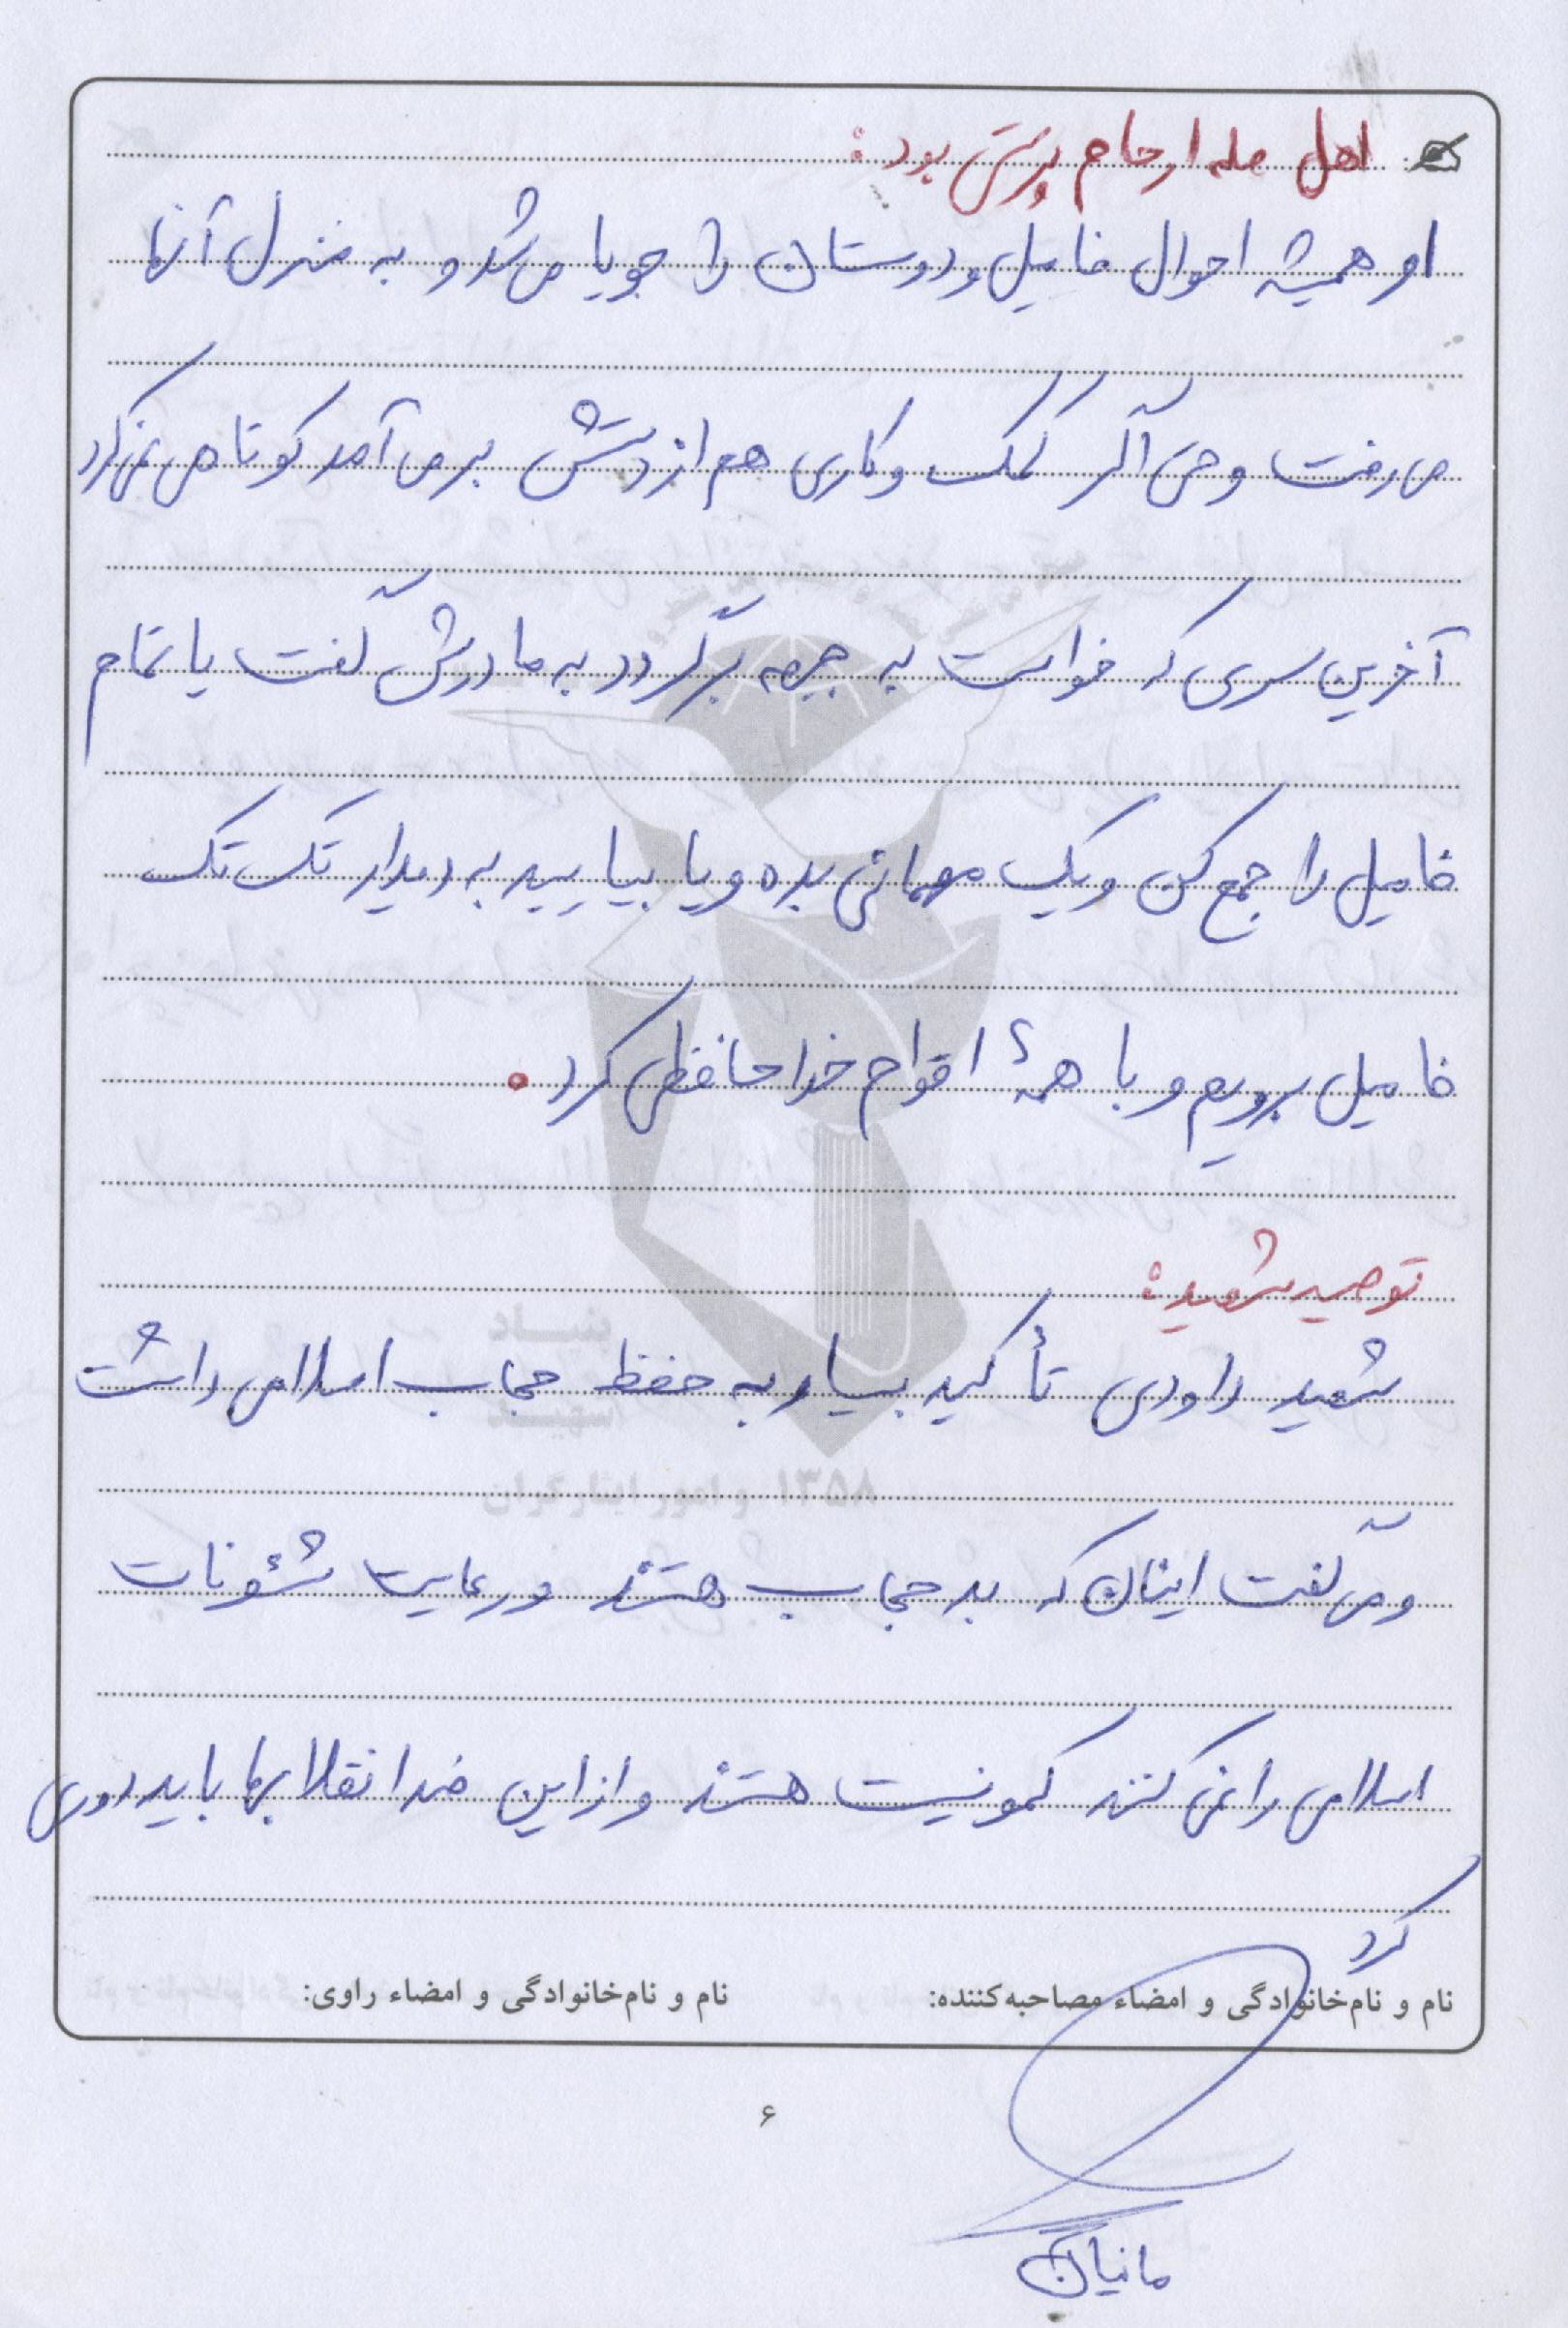 اهل صله ارحام پرسی بود:
او همیشه احوال فامیل و دوستان را جویا می‌شد و به منزل آنها
می‌رفت و حتی اگر کمک و کاری هم از دستش برمی‌آمد کوتاهی نمی‌کرد
آخرین سری که خواست به جبهه برگردد به مادرش گفت یا تمام
فامیل را جمع کن و یک مهمانی بده و یا بیایید به دیدار تک تک
فامیل برویم و با همهٔ اقوام خداحافظی کرد.
توصیه شهید:
شهید داودی تأکید بسیار به حفظ حجاب اسلامی داشت
و می‌گفت اینان که بد حجاب هستند و رعایت شئونات
اسلامی را نمی‌کنند کمونیست هستند و از این ضد انقلابها باید دوری
کرد
نام و نام‌خانوادگی و امضاء مصاحبه‌کننده: نام و نام‌خانوادگی و امضاء راوی:
۶
مانیان
بنیاد
شهید
و امور ایثارگران ۱۳۵۸